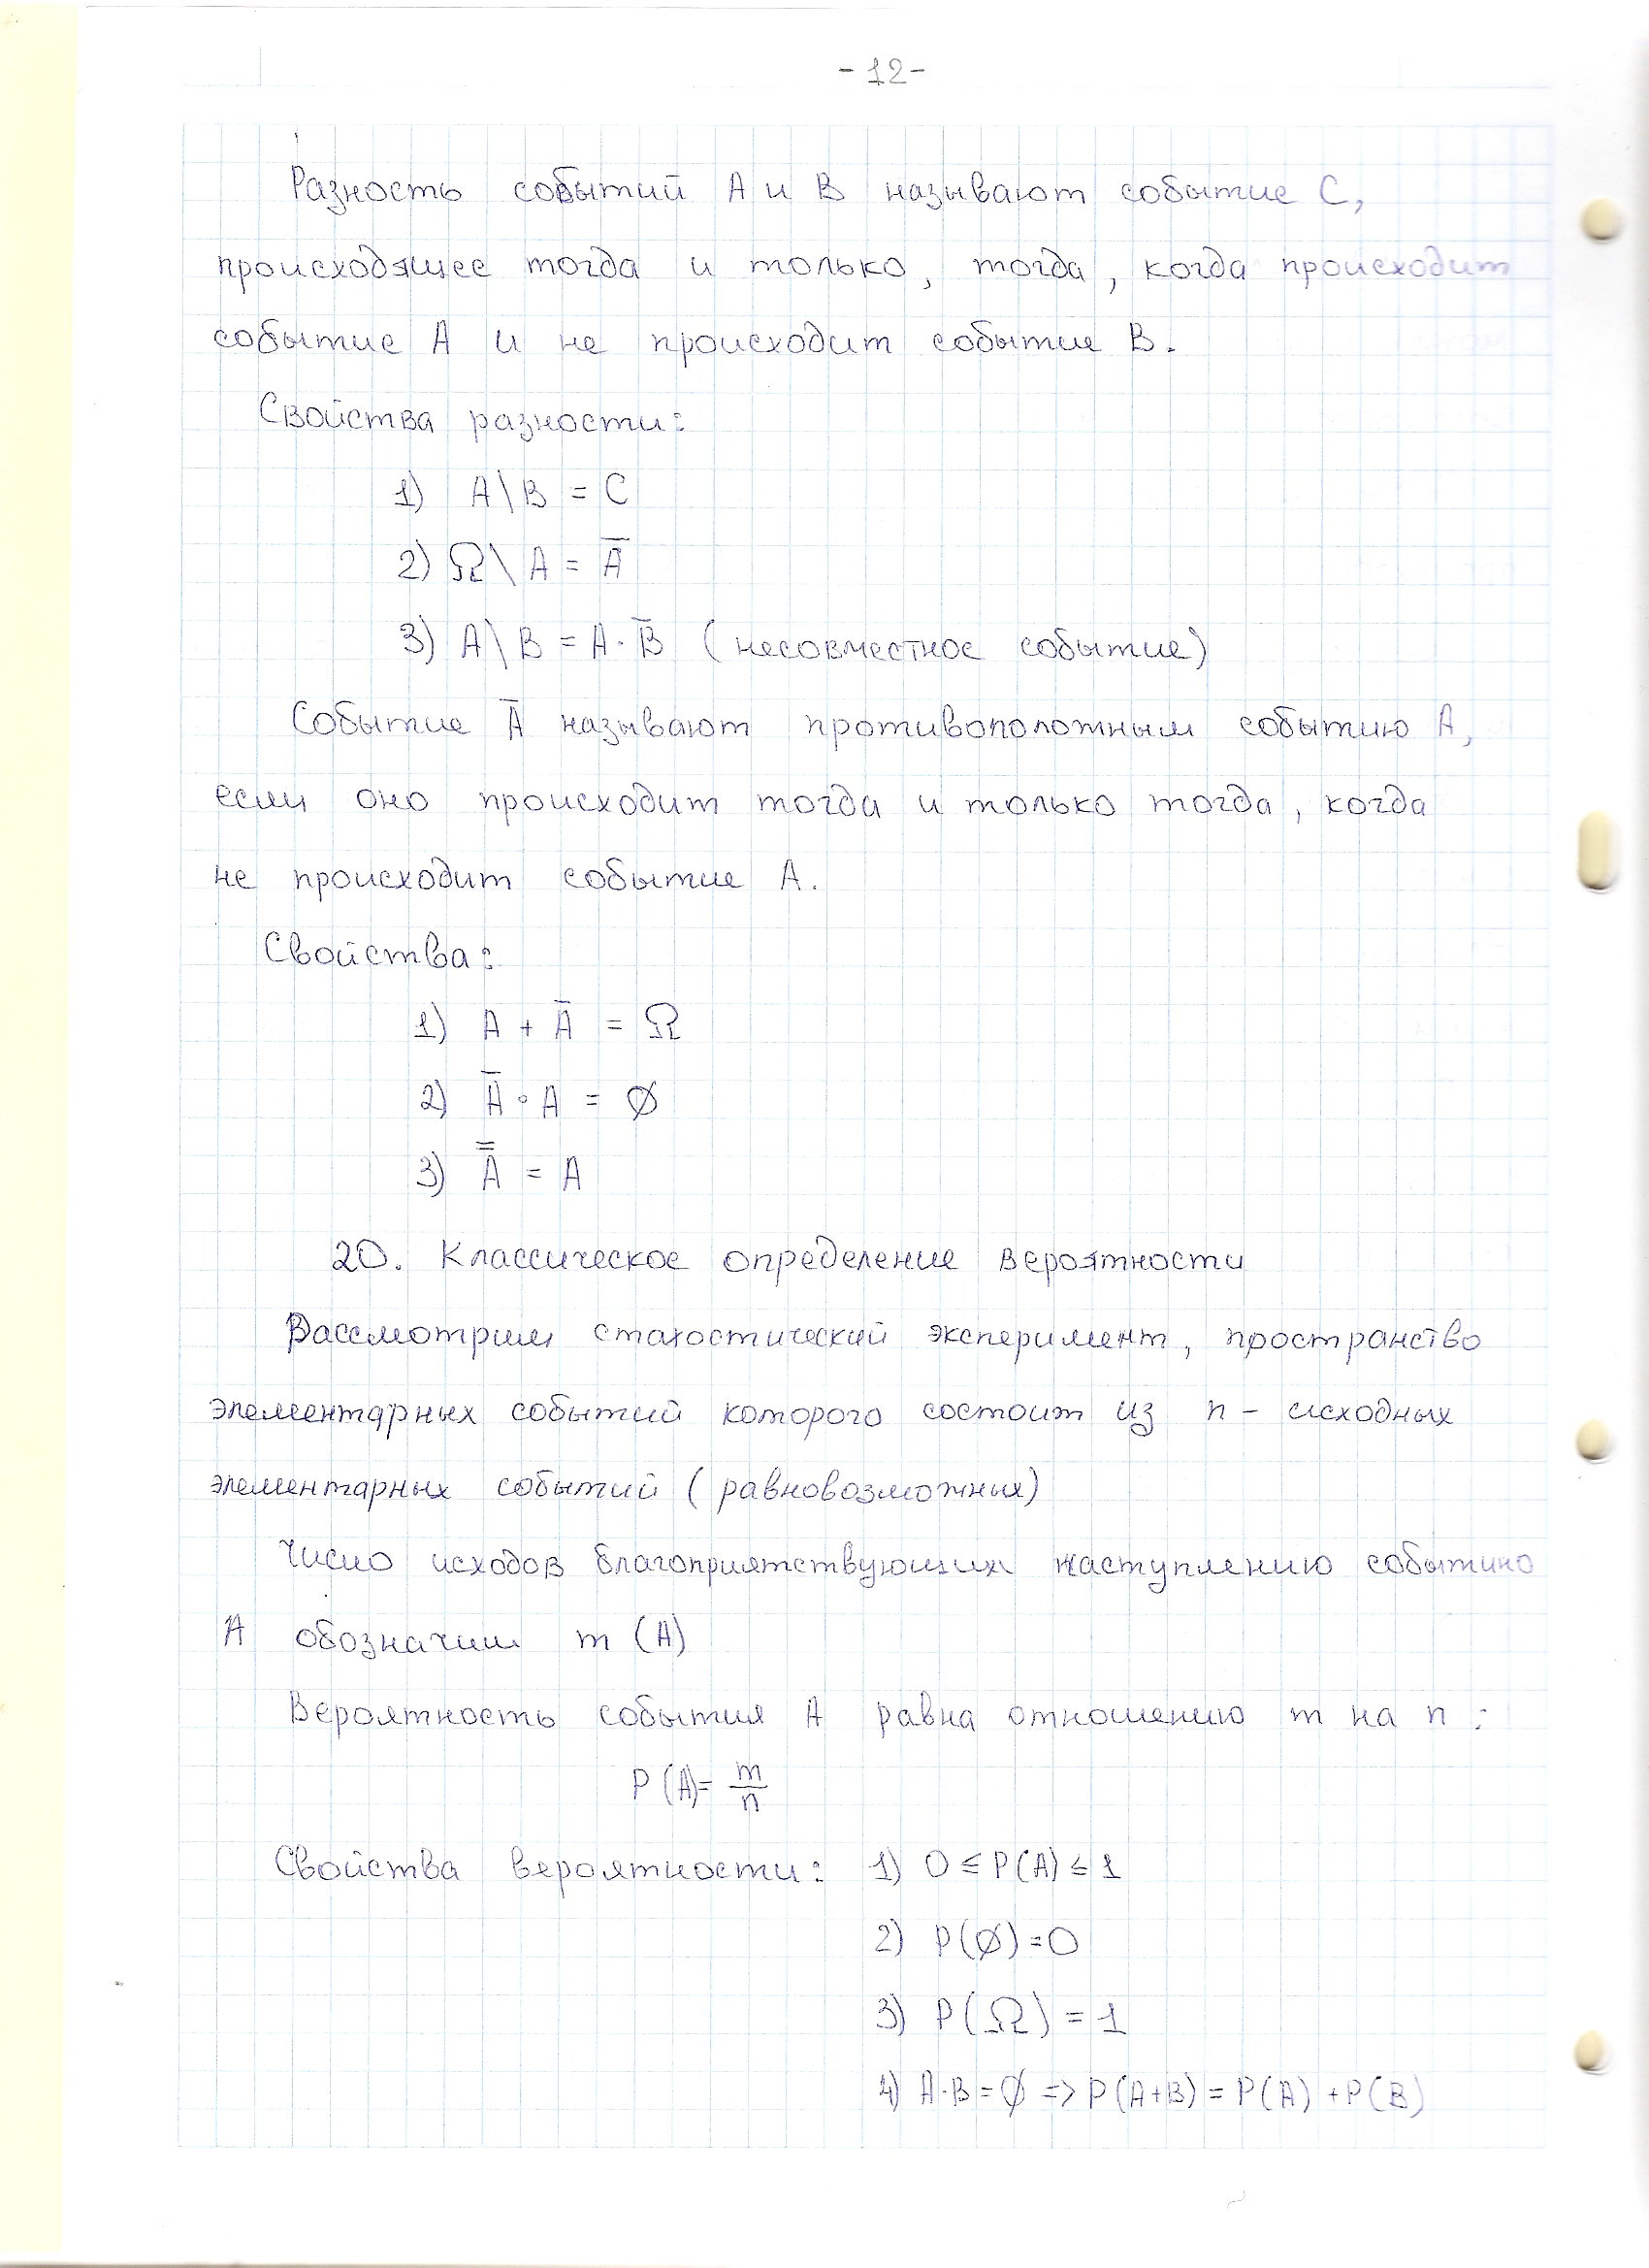 - 12 -
Разность событий A и B называют событие C,
происходящее тогда и только, тогда, когда происходит
событие A и не происходит событие B.
Свойства разности:
1) A \ B = C
2) Ω \ A = A̅
3) A \ B = A · B̅ (несовместное событие)
Событие A̅ называют противоположным событию A,
если оно происходит тогда и только тогда, когда
не происходит событие A.
Свойства:
1) A + A̅ = Ω
2) A̅ ∘ A = ∅
3) A̿ = A
20. Классическое определение вероятности
Рассмотрим стахостический эксперимент, пространство
элементарных событий которого состоит из n - исходных
элементарных событий (равновозможных)
Число исходов благоприятствующих наступлению событию
A обозначим m (A)
Вероятность события A равна отношению m на n :
P (A) = m/n
Свойства вероятности: 1) 0 ≤ P(A) ≤ 1
2) P(∅) = 0
3) P(Ω) = 1
4) A·B = ∅ => P(A+B) = P(A) + P(B)